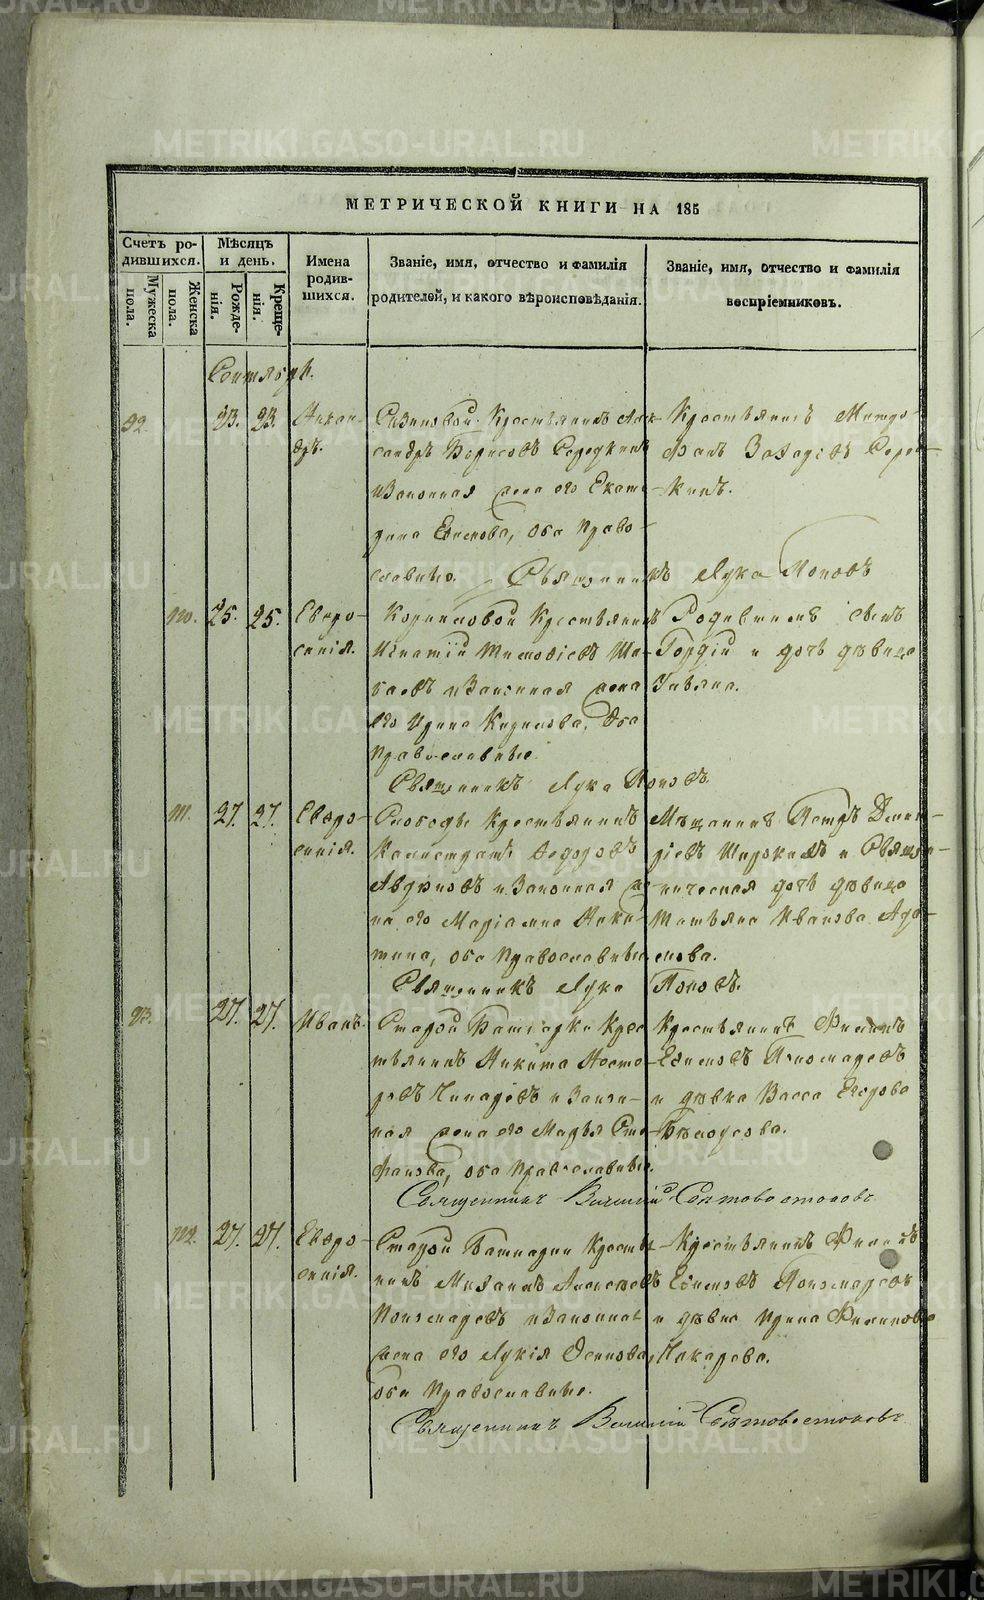 МЕТРИЧЕСКОЙ КНИГИ НА 185
Счетъ ро-
дившихся.
Мѣсяцъ
и день.
Имена
родив-
шихся.
Званіе, имя, отчество и фамилія
родителей, и какого вѣроисповѣданія.
Званіе, имя, отчество и фамилія
воспріемниковъ.
Мужеска
пола.
Женска
пола.
Рожде-
нія.
Креще-
нія.
Сентябрь.
92. 23. 23. Никан-
дръ.
Крестьянинъ Алек-
сандръ Борисовъ
и законная жена его Екате-
рина Ефимова, оба право-
славные.
Крестьянинъ Митро-
фанъ Захаровъ
Священникъ Лука Поповъ
110. 25. 25. Евфро-
синія.
Крестьянинъ
Игнатій Тимофіевъ
и законная жена
его Ирина Кирилова, оба
православные.
Родившимъ сынъ
Гордій и дочь дѣвица
Ульяна.
Священникъ Лука Поповъ.
111. 27. 27. Евфро-
синія.
Слободы Крестьянинъ
Калистратъ Федоровъ
и законная же-
на его Маріамна Ники-
тина, оба православные.
Мѣщанинъ Петръ Дмит-
ріевъ Широкихъ и Священ-
ническая дочь дѣвица
Татьяна Иванова
Священникъ Лука Поповъ.
93. 27. 27. Иванъ.
Старой Башкарки Крес-
тьянинъ Никита Несто-
ровъ и закон-
ная жена его Марья Сте-
фанова, оба православные.
Крестьянинъ Филипъ
Ефимовъ Пономаревъ
и дѣвка Васса Егорова
Бѣлоусова.
Священникъ Василій Свѣтовостоковъ
112. 27. 27. Евфро-
синія.
Старой Башкарки Крестья-
нинъ Михаилъ Алексѣевъ
Пономаревъ и законная
жена его Лукія Осипова,
оба православные.
Крестьянинъ Филипъ
Ефимовъ Пономаревъ
и дѣвка Ирина Филипова
Макарова.
Священникъ Василій Свѣтовостоковъ
METRIKI.GASO-URAL.RU